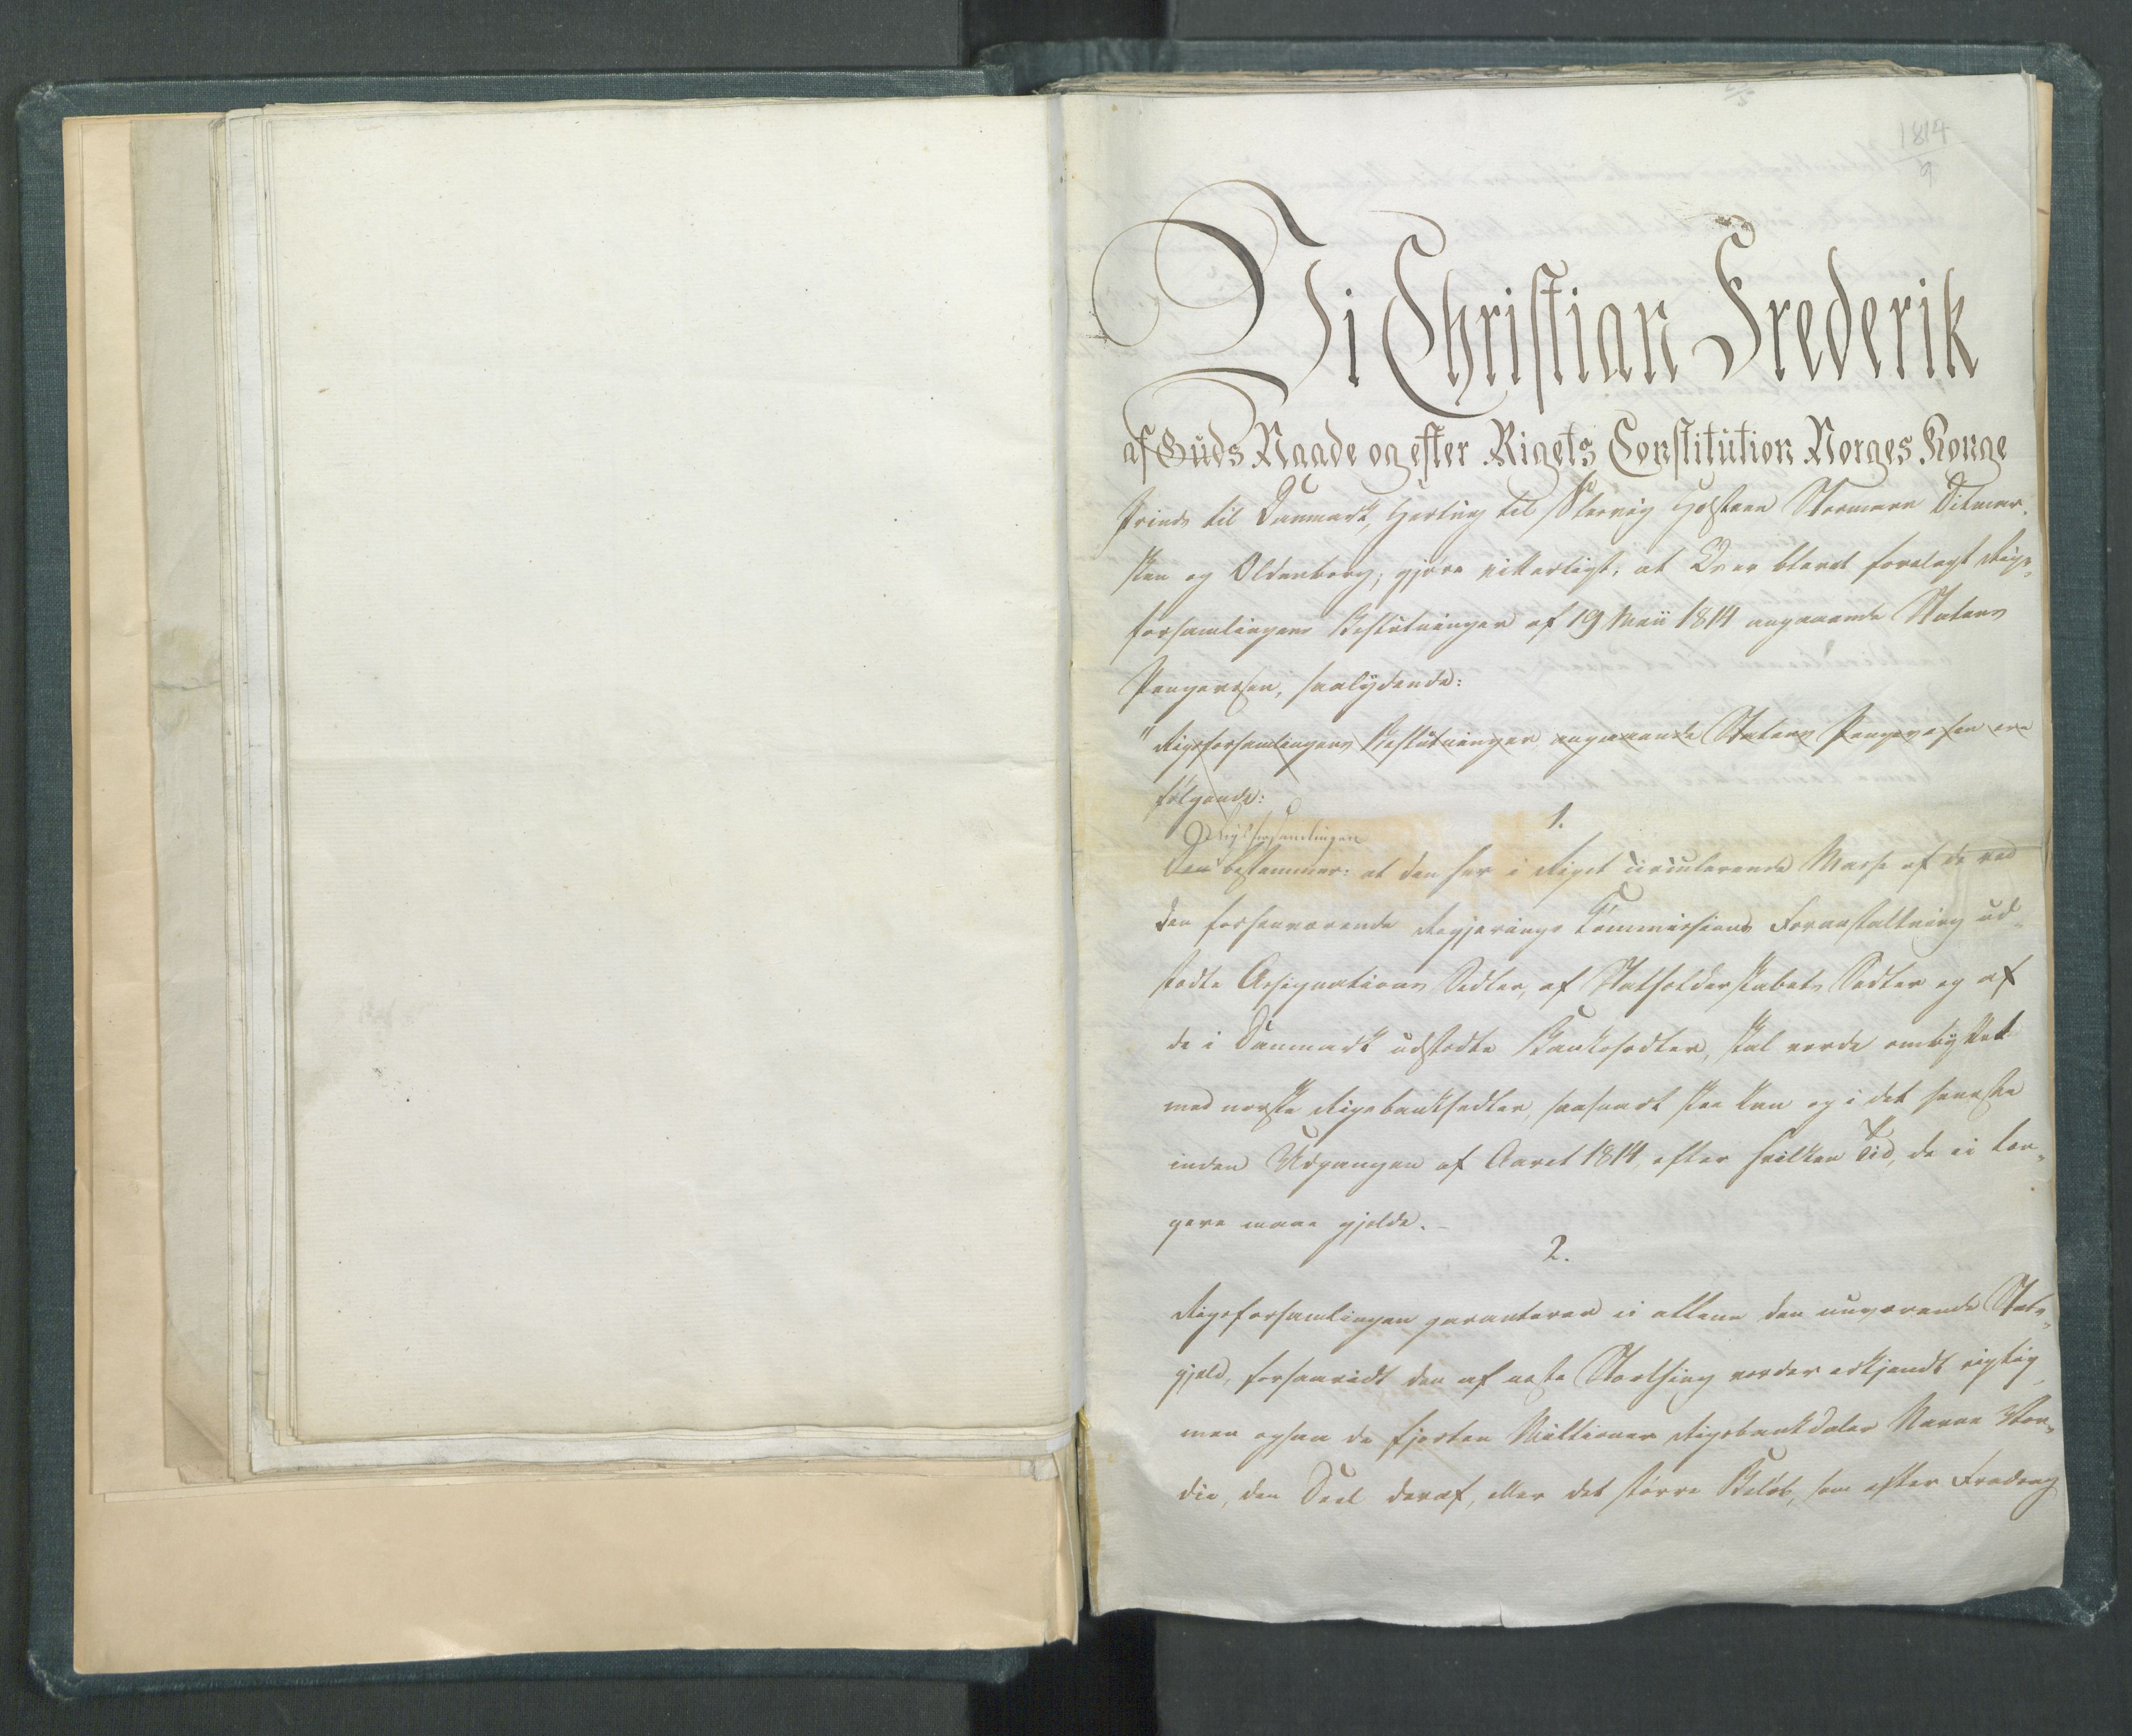 1814
9
Vi Christian Frederik
af Guds Naade og efter Rigets Constitution Norges Konge
Prinds til Danmark, Hertug til Slesvig Holsteen Stormarn Ditmar-
sken og Oldenborg; gjøre vitterligt: at Os er blevet forelagt Rigs-
forsamlingens Beslutninger af 19 Maii 1814 angaaende Statens
Pengevæsen, saalydende:
"Rigsforsamlingens Beslutninger angaaende Statens Pengevæsen ere
følgende:
1.
Rigsforsamlingen
Den bestemmer: at den her i Riget circulerende Masse af de ved
den forhenværende Regjerings Commissions Foranstaltning ud-
stædte Assignations Sedler, af Statholderskabets Sedler og af
de i Danmark udstædte Bankosedler, skal vorde ombyttet
med norske Rigsbanksedler, saasnart skee kan og i det seneste
inden Udgangen af Aaret 1814, efter hvilken Tid, de ei læn-
gere maae gjelde.
2.
Rigsforsamlingen garanterer ei allene den nuværende Stats-
gjeld, forsaavidt den af neste Storthing vorder erkjendt rigtig,
men ogsaa de fjorten Millioner Rigsbankdaler Navne Vær-
die, den Deel deraf, eller det større Beløb, som efter Fradrag